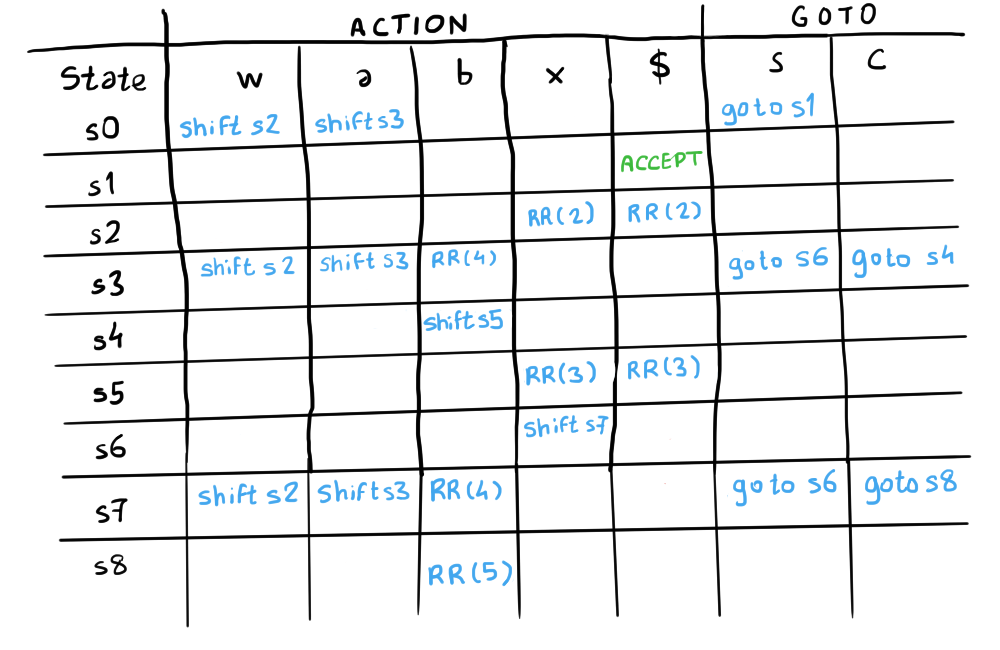 ACTION GOTO
State w a b x $ S C
s0 shift s2 shift s3 goto s1
s1 ACCEPT
s2 RR(2) RR(2)
s3 shift s2 shift s3 RR(4) goto s6 goto s4
s4 shift s5
s5 RR(3) RR(3)
s6 shift s7
s7 shift s2 shift s3 RR(4) goto s6 goto s8
s8 RR(5)